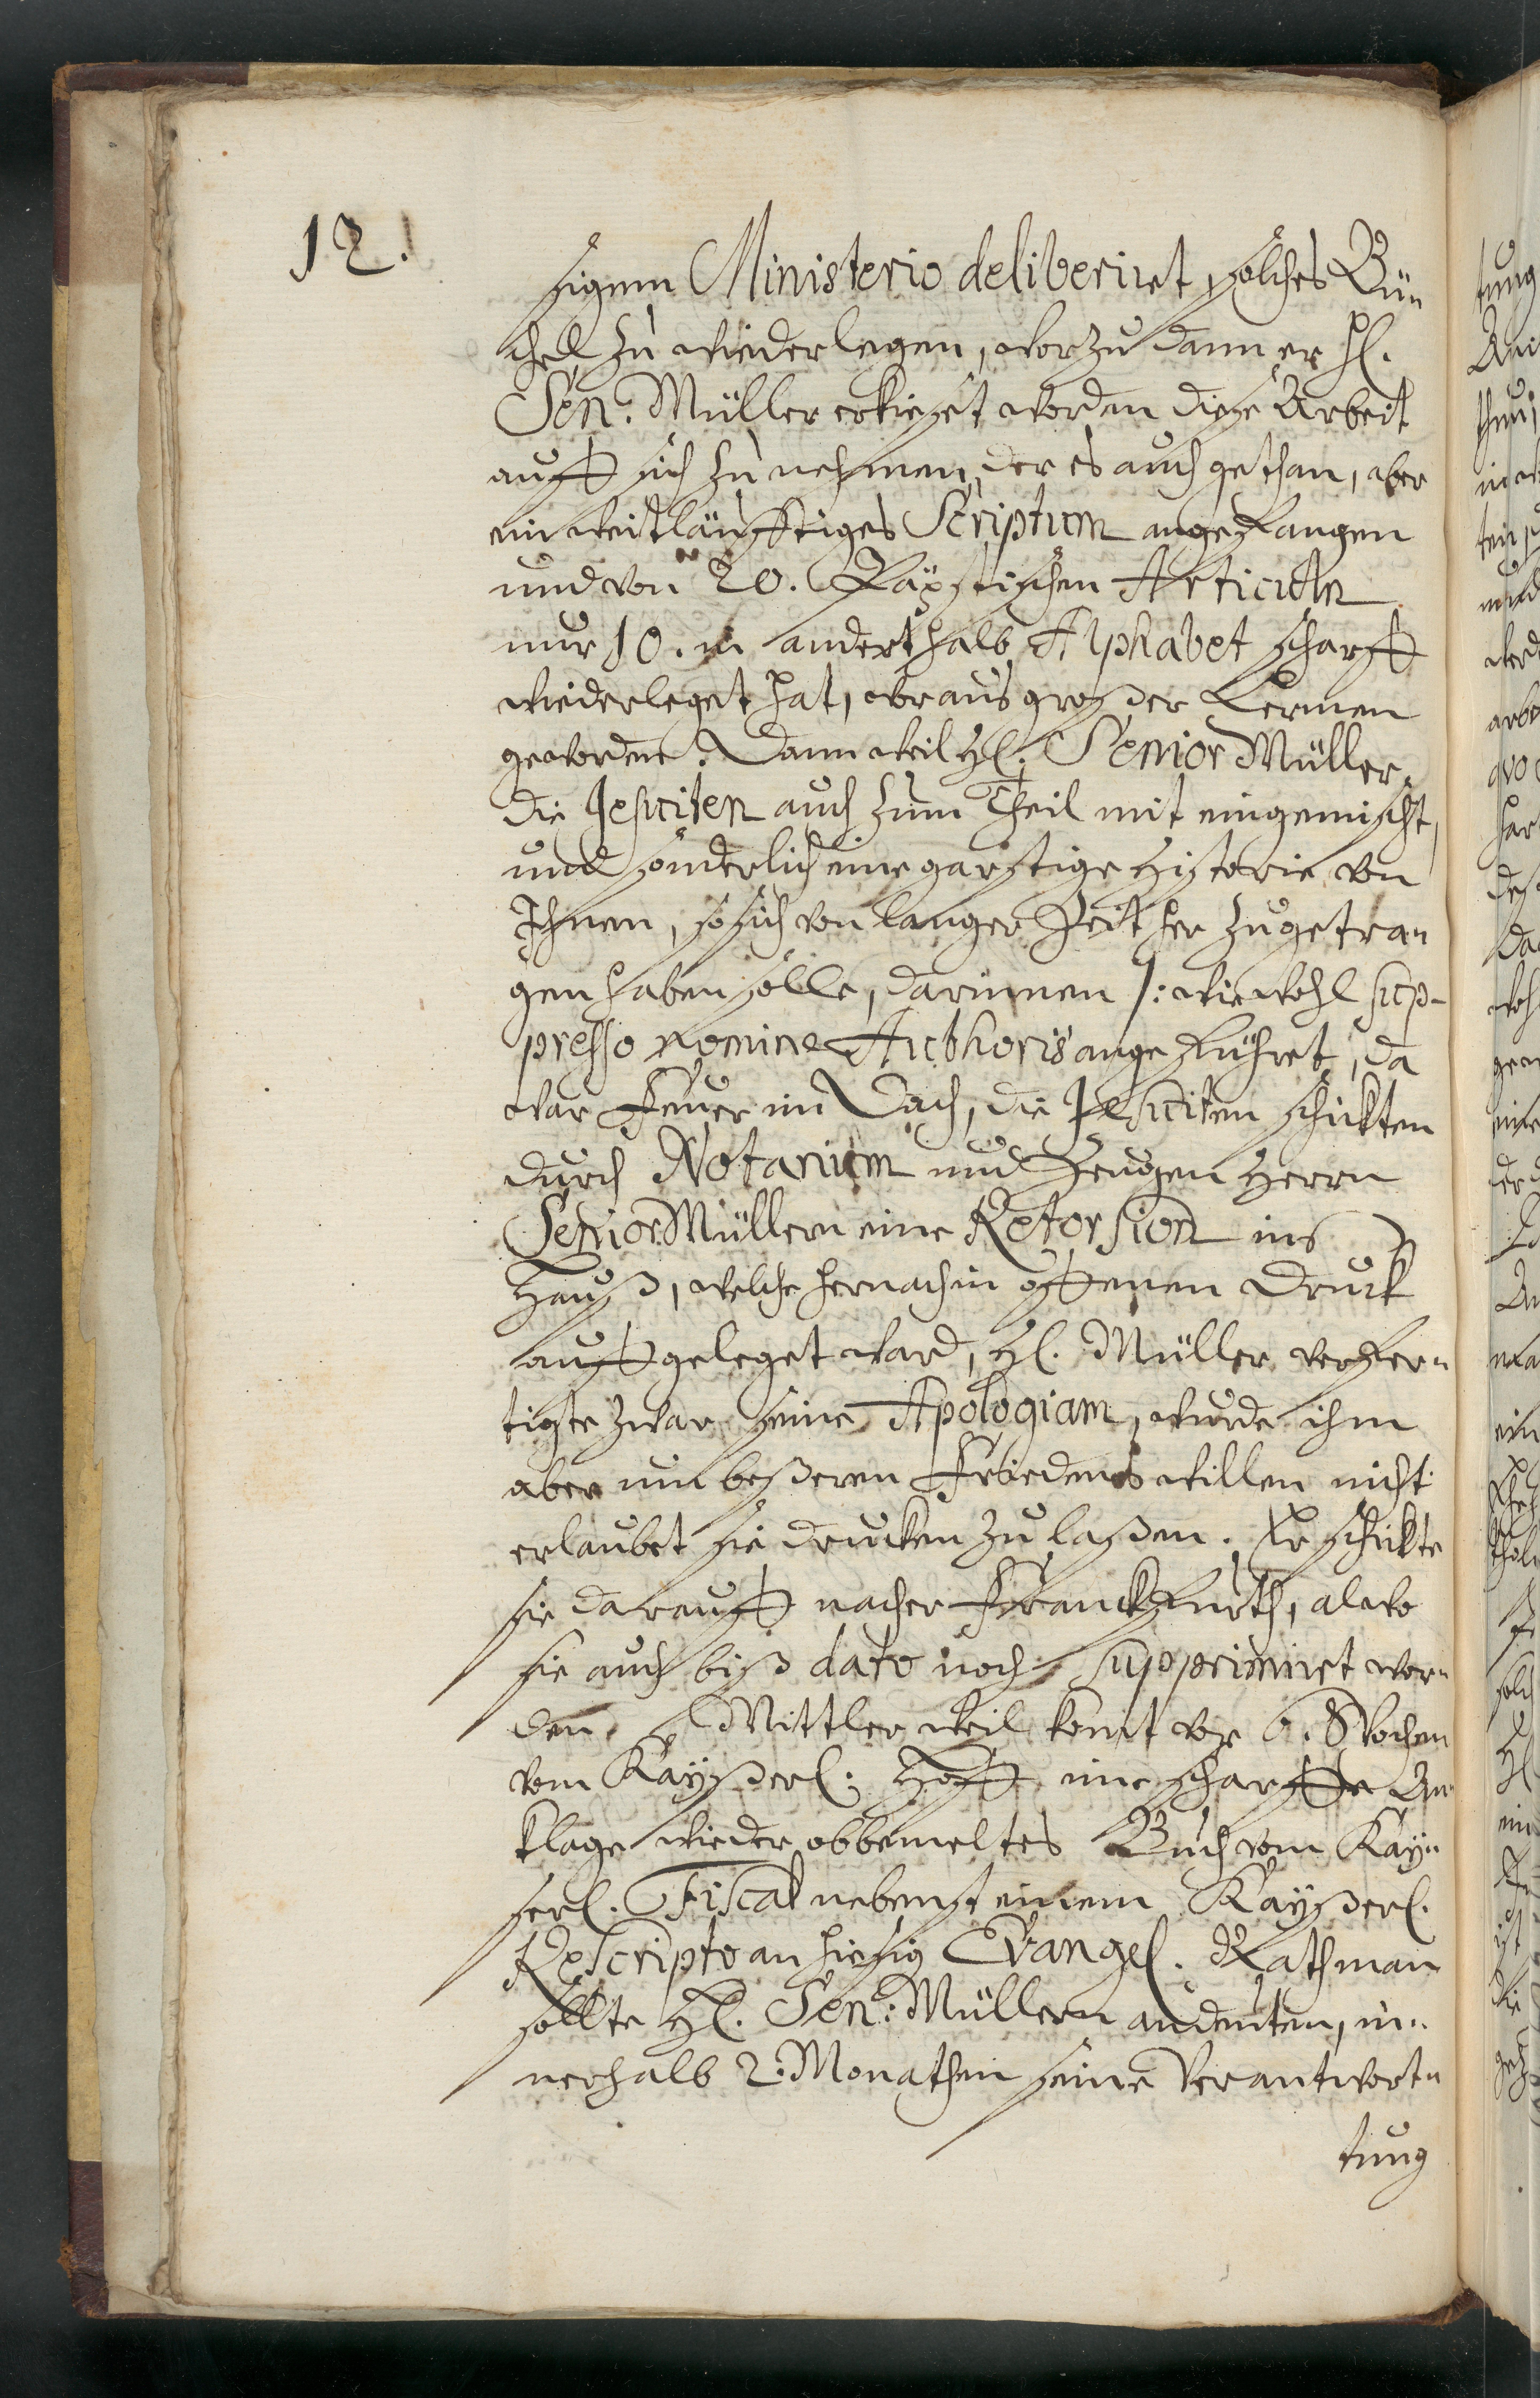 12.
sigem Ministerio deliberiret, solches Bü-
chel zu wiederlegen, worzu dann er H.
Sen: Müller erkieset worden diese Arbeit
auff sich zu nehmen, der es auch gethan, aber
ein weitläufftiges Scriptum angefangen
und von 20. Päpstischen Articuln
nur 10. in anderthalb Alphabet scharff
wiederleget hat, woraus großer Lermen
geworden. Dann weil H. Senior Müller,
die Jesuiten auch zum Theil mit eingemischt,
und sonderlich eine garstige Historie von
Ihnen, so sich von langer Zeit her zugetra-
gen haben solle, darinnen /: wiewohl sup-
presso nomine Authoris angeführet, da
war Feuer im Dach, die Jesuiten schickten
durch Notarium und Zeugen Herrn
Senior Müllern eine Retorsion ins
Hauß, welche hernach in offenen Druck
auffgeleget ward, H. Müller verfer-
tigte zwar seine Apologiam, wurde ihm
aber um beßeren Friedens willen nicht
erlaubet sie drucken zu laßen. Er schickte
sie darauff nacher Franckfurth, alwo
sie auch biß dato noch supprimiret wor-
den. Mittler weil komt vor 6. Wochen
vom Kayßerl. Hoff eine scharffe An-
klage wieder obbemeltes Buch vom Kay-
serl. Fiscal nebenst einem Kayßerl.
Rescripto an hiesig Evangel. Rath man
sollte H. Sen: Müllern andeuten, in-
nerhalb 2. Monathen seine Verantwort-
tung